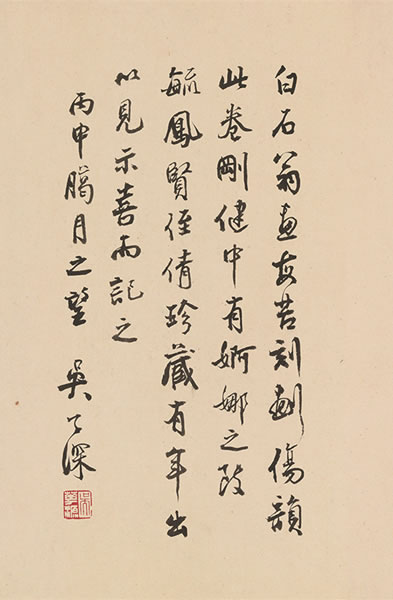 白石翁畫每苦刻劃傷韻
此卷剛健中有婀娜之致
毓鳳賢侄倩珍藏有年出
以見示喜而記之
丙申臈月之望 吳子深